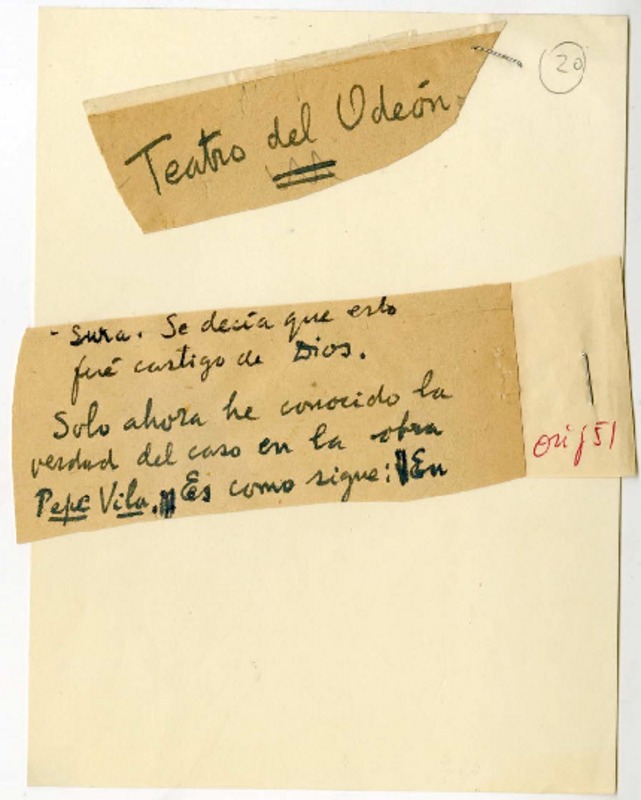 20
Teatro del Odeón
- sura. Se decía que esto
fué castigo de Dios.
Solo ahora he conocido la
verdad del caso en la obra
Pepe Vila. Es como sigue: En
orij 51